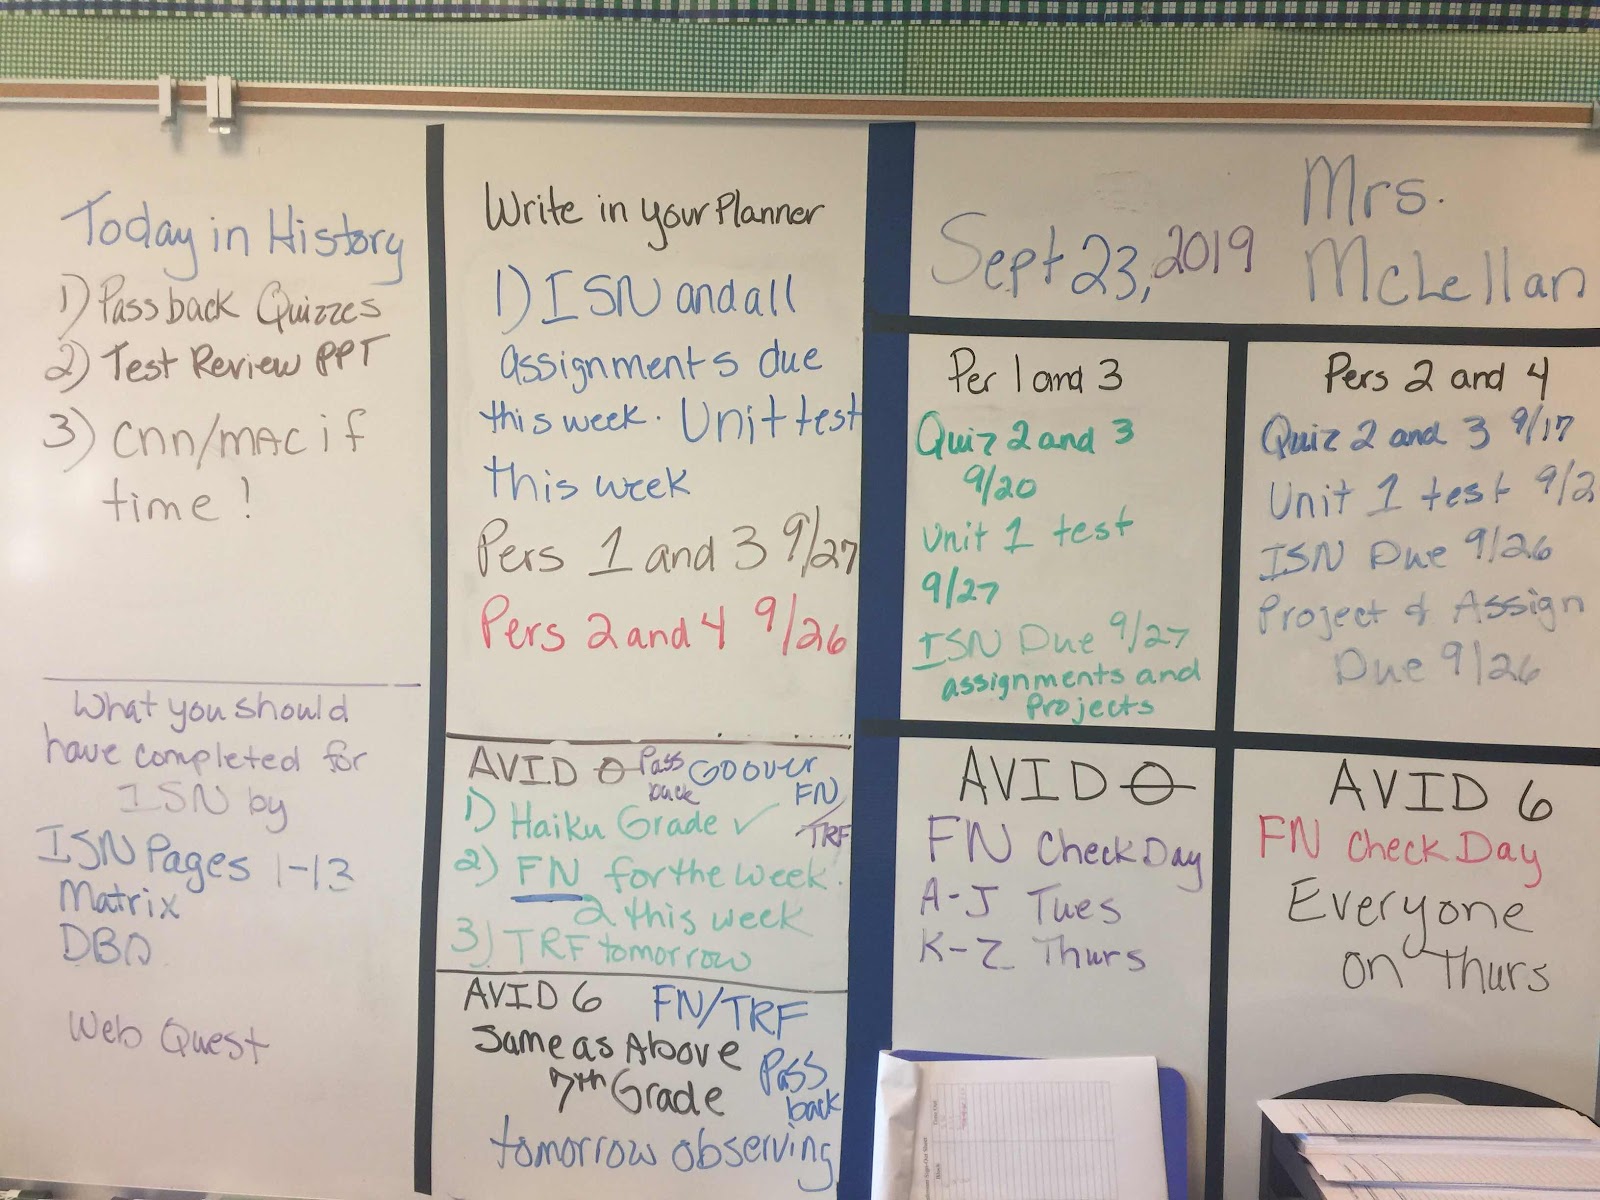 Today in History
1) Pass back Quizzes
2) Test Review PPT
3) CNN/MAC if
time!
What you should
have completed for
ISN by
ISN Pages 1-13
Matrix
Web Quest
Write in your Planner
1) ISN and all
assignments due
this week. Unit test
this week
Pers 1 and 3 9/27
Pers 2 and 4 9/26
AVID 0 Pass back Go over FN/TRF
1) Haiku Grade ✓
2) FN for the week.
2 this week
3) TRF tomorrow
AVID 6 FN/TRF
Same as Above Pass back
7th Grade
tomorrow observing
Sept 23, 2019
Mrs.
McLellan
Per 1 and 3
Quiz 2 and 3
9/20
Unit 1 test
9/27
ISN Due 9/27
assignments and
Projects
Pers 2 and 4
Quiz 2 and 3 9/17
Unit 1 test 9/2
ISN Due 9/26
Project & Assign
Due 9/26
AVID 0
FN Check Day
A-J Tues
K-Z Thurs
AVID 6
FN Check Day
Everyone
on Thurs